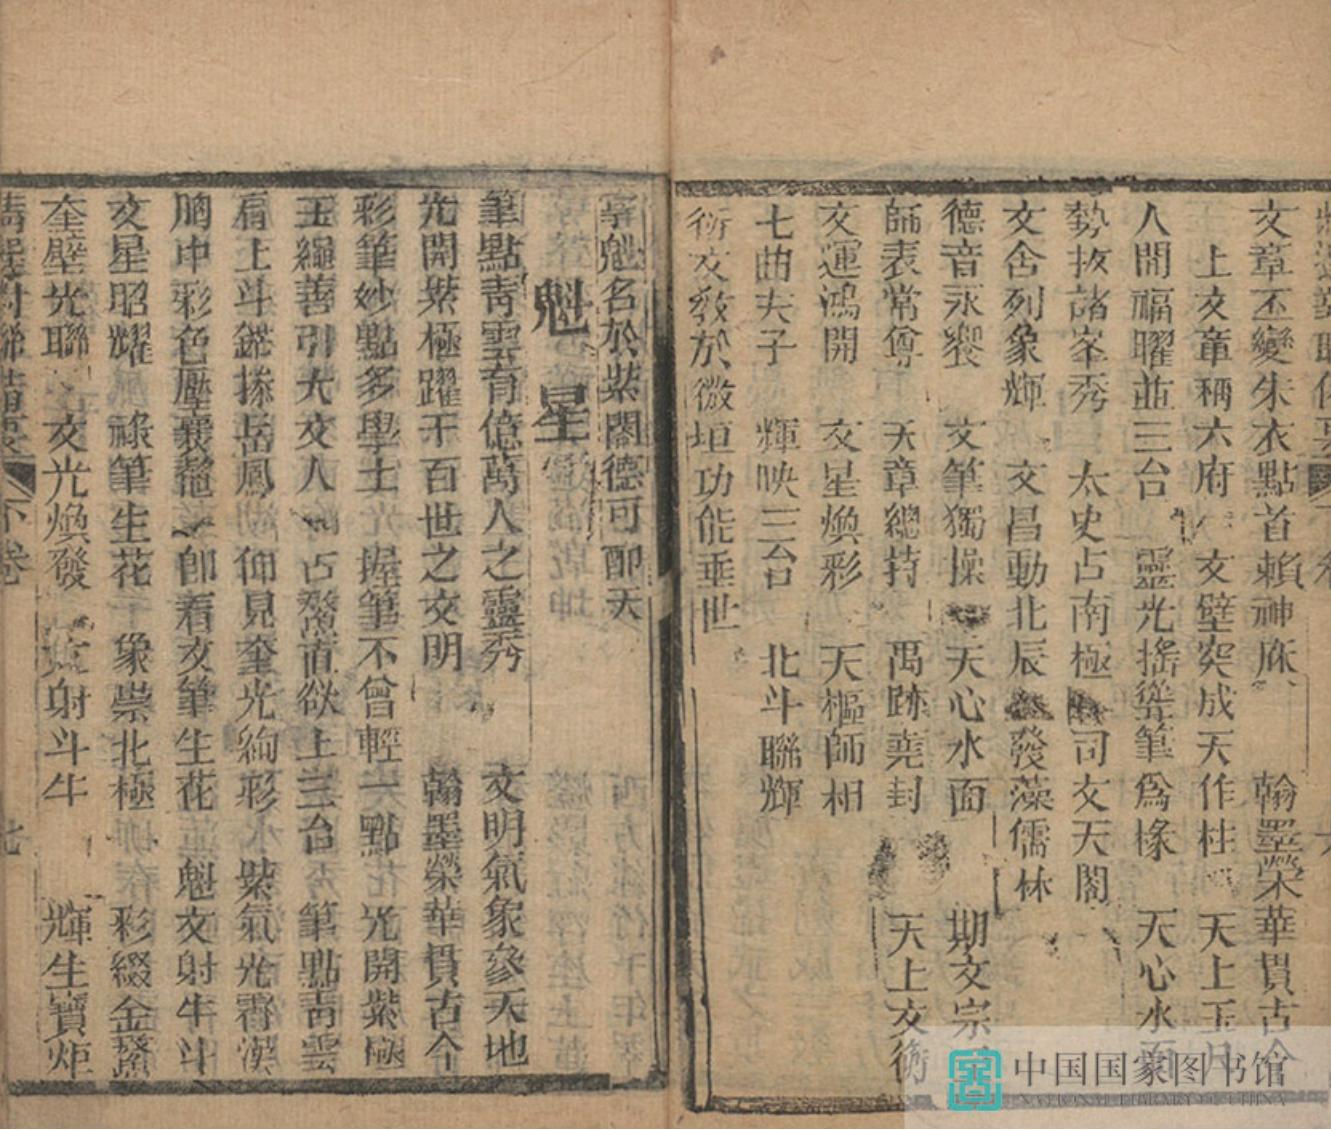 文章丕變朱衣點首賴神庥 翰墨榮華貫古今
上文章稱六府 文壁突成天作柱 天上玉
人間福曜並三台 靈光搖筆為椽 天心水面
勢拔諸峯秀 太史占南極 司文天閣
文含列象輝 文昌動北辰 發藻儒林
德音永襲 文筆獨操 天心水面 期文宗
師表常尊 天章總持 禹跡堯封 天上文衡
文運鴻開 文星煥彩 天樞師相
七曲夫子 輝映三台 北斗聯輝
衡文敎於微垣功能垂世
掌魁名於紫閣德可配天
魁星
筆點靑雲育億萬人之靈秀 文明氣象參天地
光開紫極躍千百世之文明 翰墨榮華貫古今
彩筆妙點多學士 握筆不曾輕一點 光開紫極
玉繩善引大文人 占鰲直欲上三台 筆點靑雲
肩上斗 岳鳳 仰見奎光絢彩 紫氣光霽漢
胸中彩色壓 卽看文筆生花 魁文射牛斗
文星昭耀 祿筆生花 象崇北極 彩綴金鰲
奎壁光聯 文光煥發 射斗牛 輝生寶炬
對聯 下卷 七
中国国家图书馆
NATIONAL LIBRARY OF CHINA